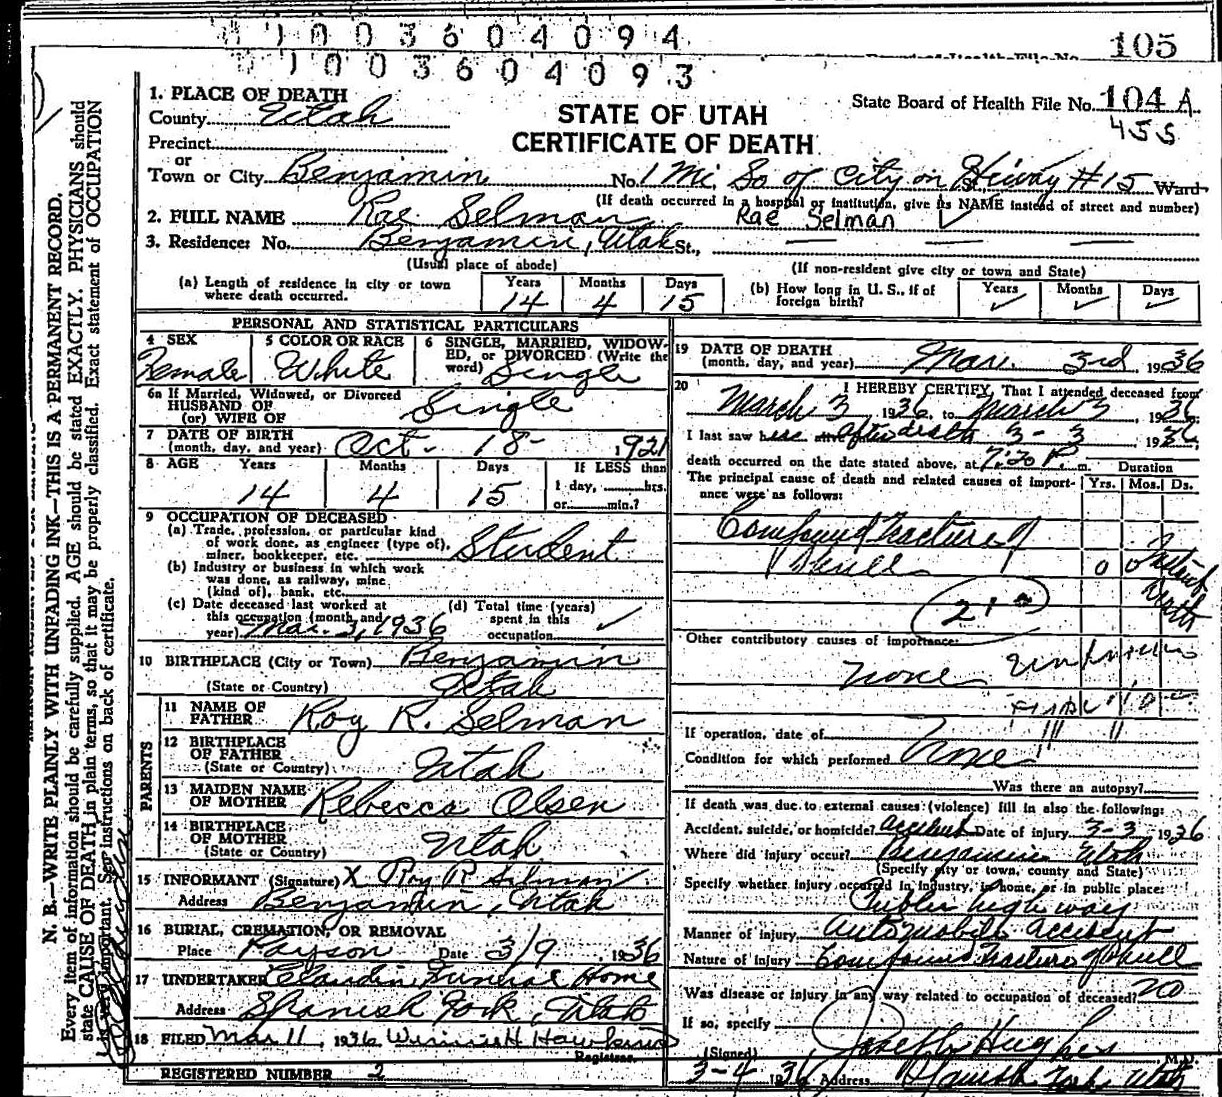 1 0 0 3 6 0 4 0 9 4
105
1 0 0 3 6 0 4 0 9 3
1. PLACE OF DEATH
County Utah
STATE OF UTAH
CERTIFICATE OF DEATH
State Board of Health File No. 104 A
455
Precinct
or
Town or City Benjamin No. 1 Mi So of City on Hiway #15 Ward
(If death occurred in a hospital or institution, give its NAME instead of street and number)
2. FULL NAME Rae Selman Rae Selman
3. Residence: No. Benjamin, Utah St.,
(Usual place of abode) (If non-resident give city or town and State)
(a) Length of residence in city or town where death occurred. Years 14 Months 4 Days 15
(b) How long in U. S., if of foreign birth? Years ✓ Months ✓ Days ✓
PERSONAL AND STATISTICAL PARTICULARS
4 SEX Female
5 COLOR OR RACE White
6 SINGLE, MARRIED, WIDOWED, or DIVORCED (Write the word) Single
6a If Married, Widowed, or Divorced
HUSBAND OF
(or) WIFE OF Single
7 DATE OF BIRTH
(month, day, and year) Oct. 18- 1921
8 AGE Years 14 Months 4 Days 15 If LESS than 1 day, hrs. or min.?
9 OCCUPATION OF DECEASED
(a) Trade, profession, or particular kind of work done, as engineer (type of), miner, bookkeeper, etc. Student
(b) Industry or business in which work was done, as railway, mine (kind of), bank, etc.
(c) Date deceased last worked at this occupation (month and year) Mar. 3, 1936
(d) Total time (years) spent in this occupation ✓
10 BIRTHPLACE (City or Town) Benjamin
(State or Country) Utah
PARENTS
11 NAME OF FATHER Roy R. Selman
12 BIRTHPLACE OF FATHER
(State or Country) Utah
13 MAIDEN NAME OF MOTHER Rebecca Olsen
14 BIRTHPLACE OF MOTHER
(State or Country) Utah
15 INFORMANT (Signature) X Roy R Selman
Address Benjamin, Utah
16 BURIAL, CREMATION, OR REMOVAL
Place Payson Date 3/9 1936
17 UNDERTAKER Claudin Funeral Home
Address Spanish Fork, Utah
18 FILED Mar 11, 1936 Registrar.
REGISTERED NUMBER 2
19 DATE OF DEATH
(month, day, and year) Mar. 3rd 1936
20 I HEREBY CERTIFY, That I attended deceased from
March 3, 1936, to March 3, 1936
I last saw her after death 3-3, 1936
death occurred on the date stated above, at 7:20 P. m.
The principal cause of death and related causes of importance were as follows:
Duration
Yrs. Mos. Ds.
Compound Fracture of
Skull 0 0 Instant Death
210
Other contributory causes of importance:
none
If operation, date of
Condition for which performed None
Was there an autopsy?
If death was due to external causes (violence) fill in also the following:
Accident, suicide, or homicide? Accident Date of injury 3-3, 1936
Where did injury occur? Benjamin Utah
(Specify city or town, county and State)
Specify whether injury occurred in industry, in home, or in public place:
Public high way
Manner of injury Automobile Accident
Nature of injury Compound Fracture of Skull
Was disease or injury in any way related to occupation of deceased? no
If so, specify
(Signed) Joseph Hughes M.D.
3-4 1936 Address Spanish Fork Utah
N. B.—WRITE PLAINLY WITH UNFADING INK—THIS IS A PERMANENT RECORD.
Every item of information should be carefully supplied. AGE should be stated EXACTLY. PHYSICIANS should
state CAUSE OF DEATH in plain terms, so that it may be properly classified. Exact statement of OCCUPATION
is very important. See instructions on back of certificate.